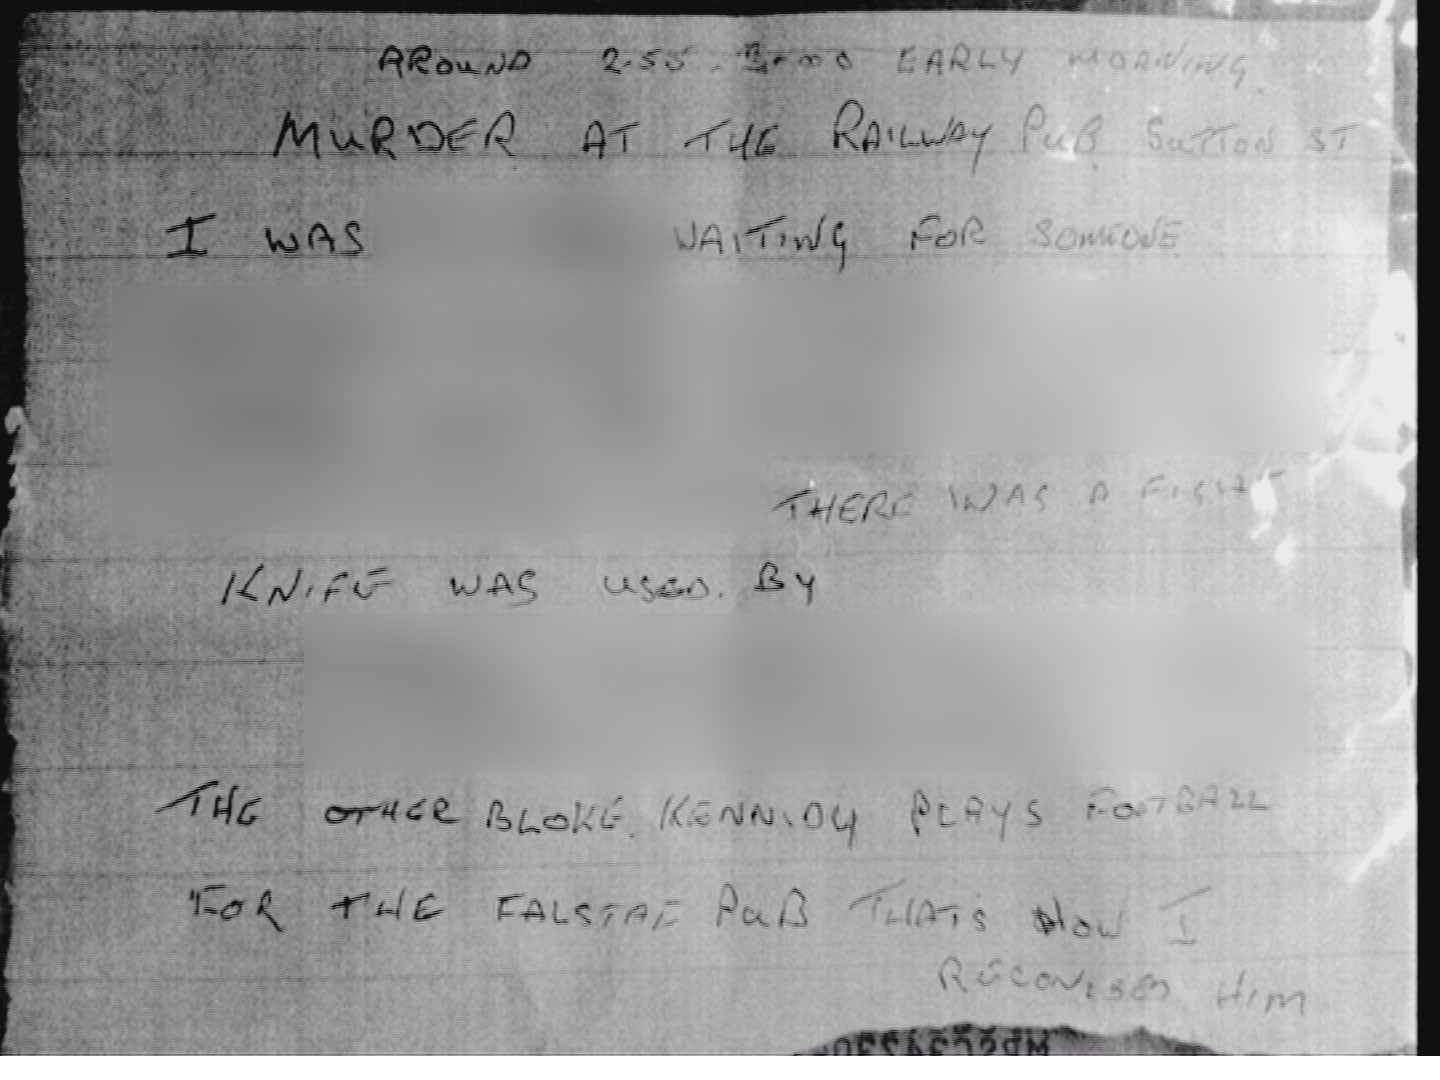 AROUND 2.55. 3.00 EARLY MORNING
MURDER AT THE RAILWAY PUB SUTTON ST
I WAS WAITING FOR SOMEONE
THERE WAS A FIGHT
KNIFE WAS USED. BY
THE OTHER BLOKE. KENNIDY PLAYS FOOTBALL
FOR THE FALSTAF PUB THATS HOW I
RECONISED HIM